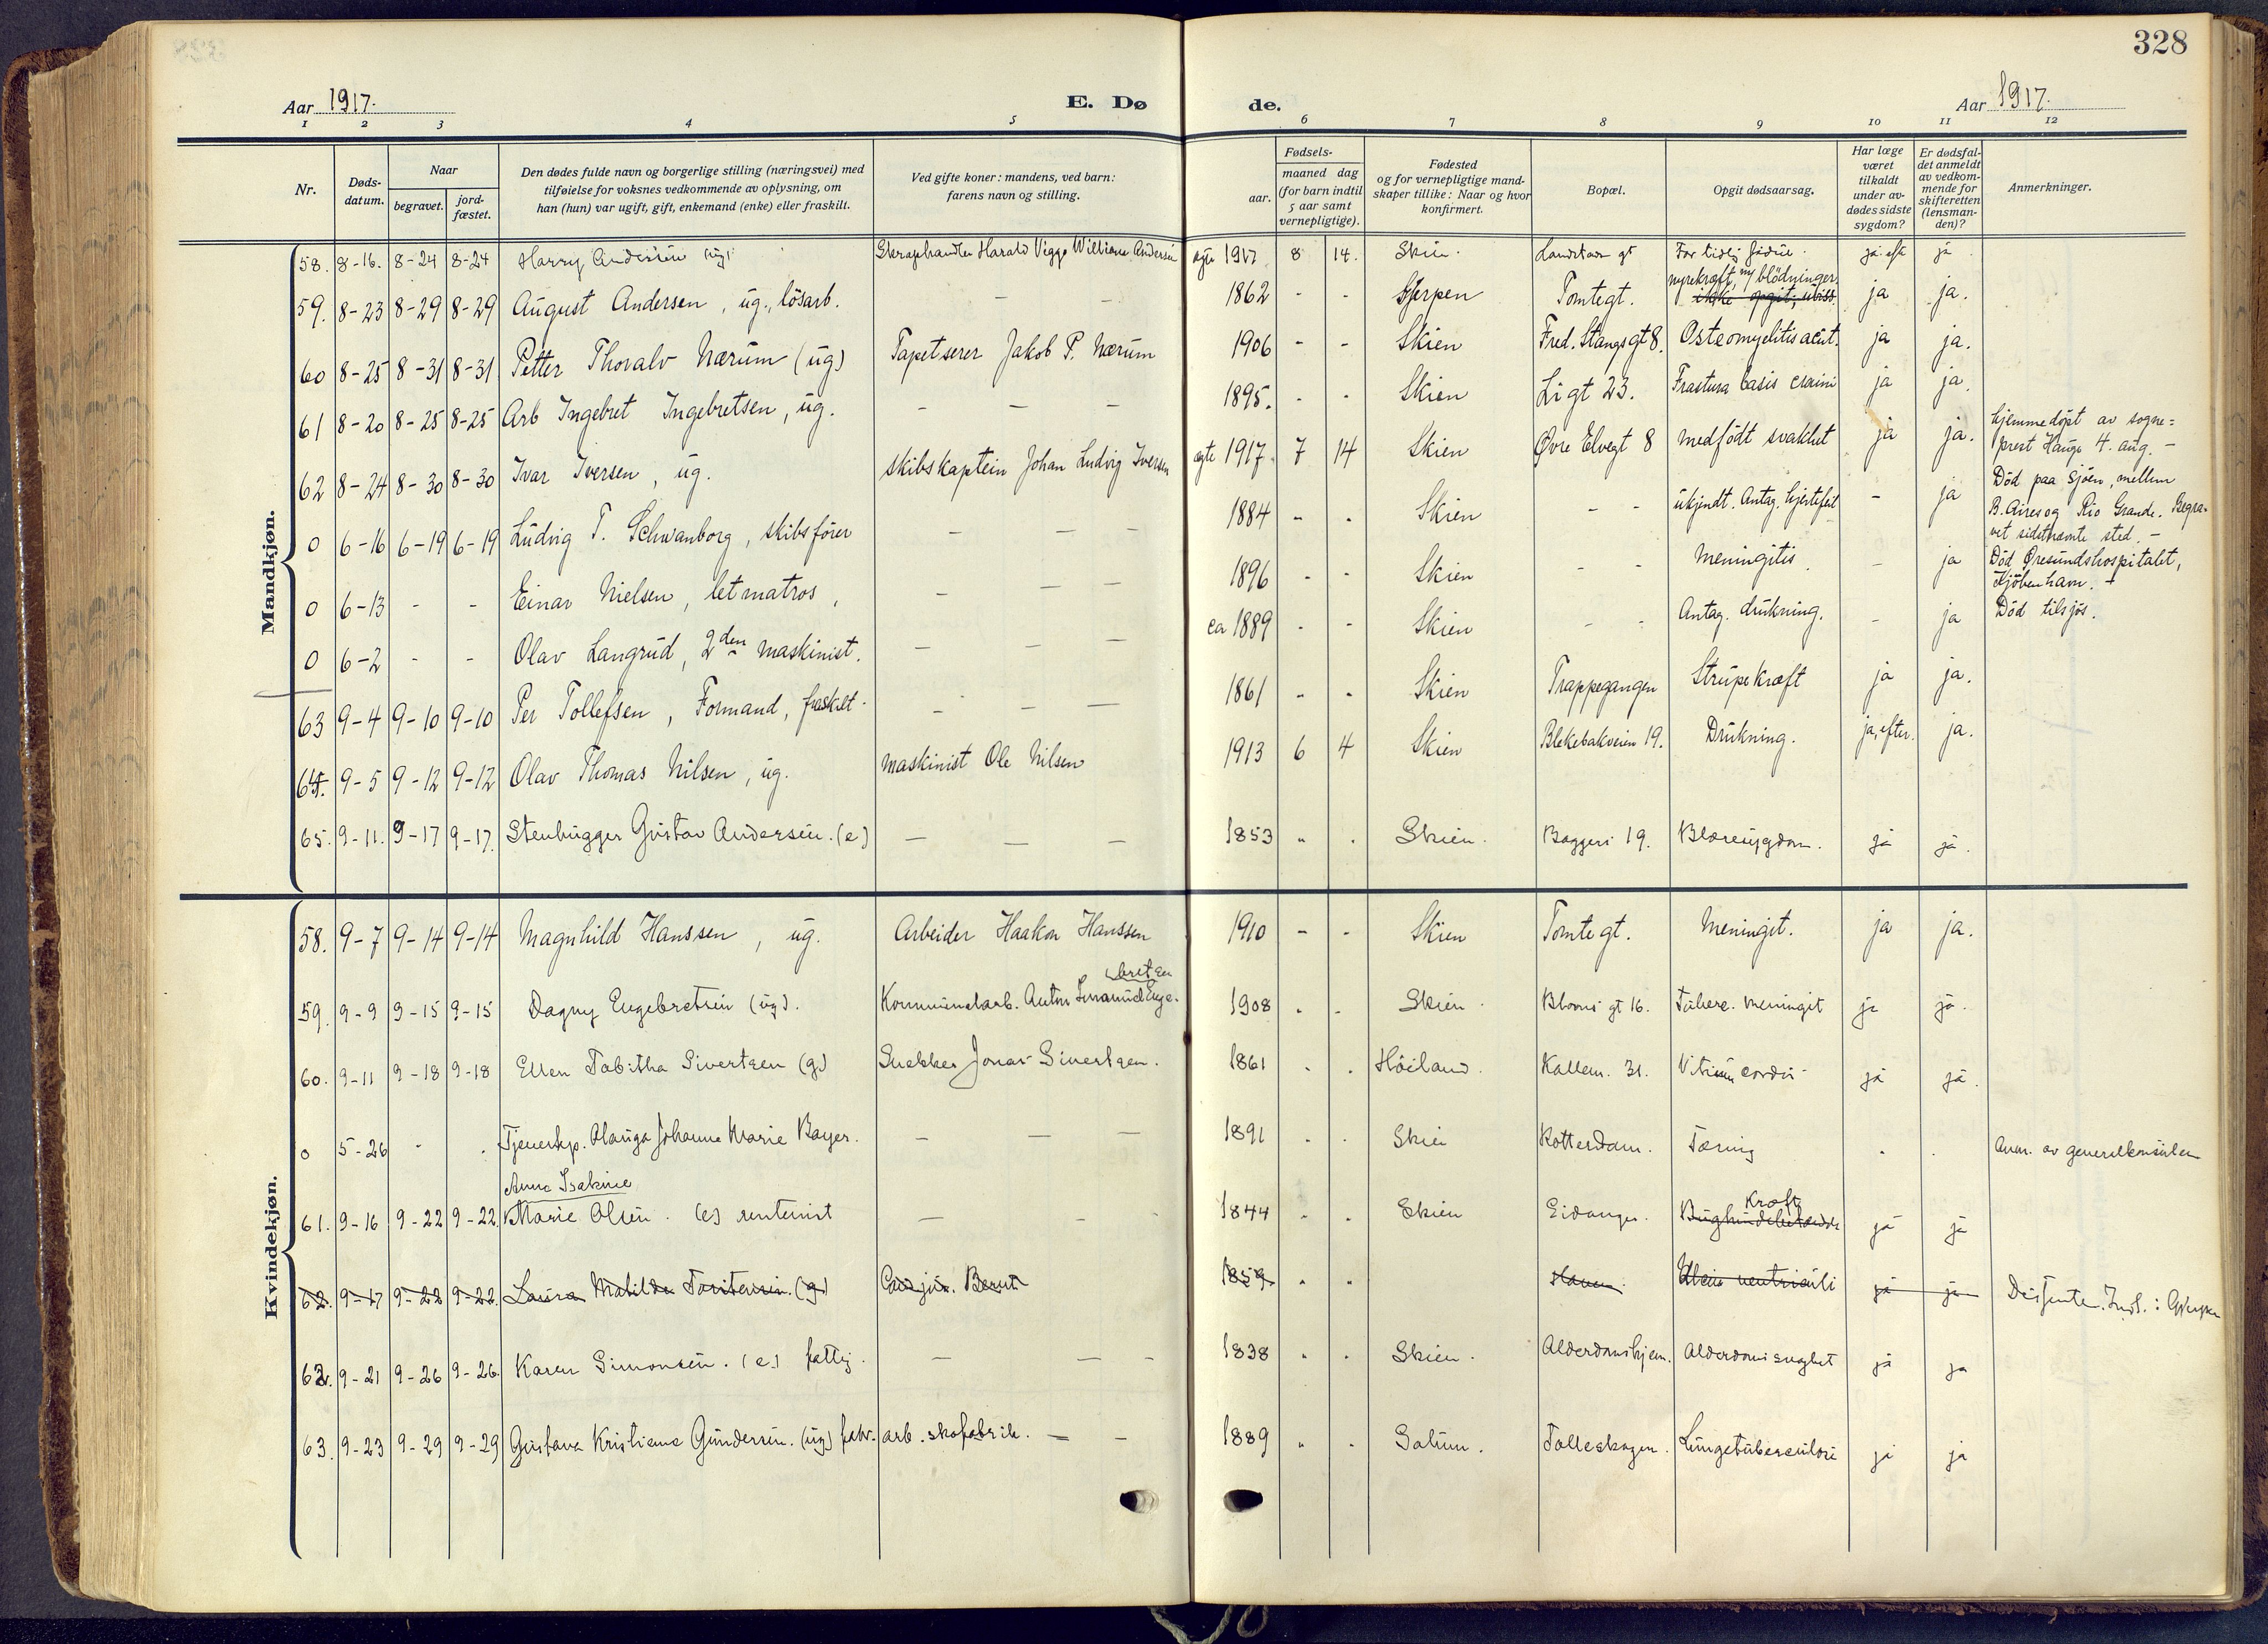 328
Aar 1917. E. Dø de. Aar 1917.
1 2 3 4 5 6 7 8 9 10 11 12
Nr. Døds-datum. Naar begravet. jord-fæstet. Den dødes fulde navn og borgerlige stilling (næringsvei) med tilføielse for voksnes vedkommende av oplysning, om han (hun) var ugift, gift, enkemand (enke) eller fraskilt. Ved gifte koner: mandens, ved barn: farens navn og stilling. Fødsels- aar. maaned dag (for barn indtil 5 aar samt vernepligtige). Fødested og for vernepligtige mandskaper tillike: Naar og hvor konfirmert. Bopæl. Opgit dødsaarsag. Har læge været tilkaldt under avdødes sidste sygdom? Er dødsfaldet anmeldt av vedkommende for skifteretten (lensmanden)? Anmerkninger.
Mandkjøn.
58. 8-16. 8-24 8-24 Harry Andersen (ug) Skraphandler Harald Viggo William Andersen egte 1917 8 14. Skien. Landstads gt For tidlig fødsel. ja eft ja
59. 8-23 8-29 8-29 August Andersen, ug., lösarb. - - 1862 - - Gjerpen Tomtegt. nyrekræft, m/ blödninger. ikke opgit; ubiss ja ja.
60 8-25 8-31 8-31 Petter Thoralv Nærum (ug) Tapetserer Jakob P. Nærum 1906 - - Skien Fred. Stangsgt 8. Osteomyelitis acut. ja ja.
61 8-20 8-25 8-25 Arb Ingebret Ingebretsen, ug. - - - 1895. - - Skien Ligt 23. Frastura basis craini ja ja.
62 8-24 8-30 8-30 Ivar Iversen, ug. skibskaptein Johan Ludvig Iversen egte 1917. 7 14 Skien Øvre Elvegt 8 medfödt svakhet ja ja. hjemmedöpt av sogne=
prest Hauge 4. aug. -
0 6-16 6-19 6-19 Ludvig T. Schwanborg, skibsförer - - - 1884 - - Skien - - ukjendt. Antag. hjertefeil - ja Död paa sjöen, mellem
B. Aires og Rio Grande. Begra-
vet sidstnævnte sted. -
0 6-13 - - Einar Nielsen, letmatros, - - - 1896 - - Skien - - Meningitis. - ja Död Øresundshospitalet,
Kjöbenhavn. -
0 6-2 - - Olav Langrud, 2den maskinist. - - - ca 1889 - - Skien - - Antag. drukning. - ja Död tilsjøs.
63 9-4 9-10 9-10 Per Tollefsen, Formand, fraskilt. - - - 1861 - - Skien Trappegangen Strupekræft ja ja.
64. 9-5 9-12 9-12 Olav Thomas Nilsen, ug. maskinist Ole Nilsen 1913 6 4 Skien Blekebakveien 19. Drukning. ja, efter. ja.
65. 9-11. 9-17 9-17. Stenhugger Gustav Andersen. (e) - - - 1853 - - Skien. Baggeri 19. Blæresygdom. ja ja.
Kvindekjøn.
58. 9-7 9-14 9-14 Magnhild Hanssen, ug. Arbeider Haakon Hanssen 1910 - - Skien Tomtegt. Meningit. ja ja.
59. 9-9 9-15 9-15 Dagny Engebretsen (ug). Kommunelarb. Anton Enge-
bretsen 1908 . - Skien gt 16. Tuberc. meningit ja ja.
60. 9-11 9-18 9-18 Ellen Tabitha Sivertsen (g.) Snekker Jonas Sivertsen. 1861 . . Höiland. Kallem. 31. Vitium cordis ja ja.
0 5-26 - . Tjenerskp. Olauga Johanne Marie Bayer. - - - 1891 . . Skien Rotterdam. Tæring . . Anm. av generalkonsulen
Anna Isakine
61. 9-16 9-22 9-22. Marie Olsen. (e) rentenist - - - 1844 . . Skien Eidanger. Kræft ja ja
62. 9-17 9-22 9-22. Laura Matilde Torstensen. (g) 1859. . . ventriculi ja ja Dissenter.
62. 9-21 9-26 9-26. Karen Simonsen. (e) fattig. - - - 1838 . . Skien. Alderdomshjem. Alderdomssvaghet ja ja
63. 9-23 9-29 9-29 Gustava Kristiane Gundersen. (ug) fabr. arb. skofabrik. - - 1889 . . Solum. Falleskogen. Lungetuberculose ja ja